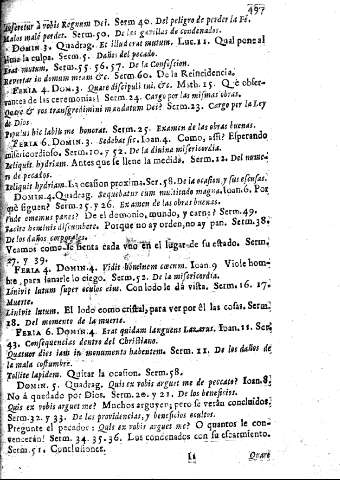 497
Auferetur à vobis Regnum Dei. Serm 40. Del peligro de perder la Fé.
Malos malè perdet. Serm. 50. De las gavillas de condenados.
DOMIN. 3. Quadrag. Et illud erat mutum. Luc. 11. Qual pone al
alma la culpa. Serm. 5. Daños del pecado.
Erat mutum. Serm. 55. 56. 57. De la Confission.
Revertar in domum meam &c. Serm. 60. De la Reincidencia.
FERIA 4. DOM. 3. Quare discipuli tui, &c. Math. 15. Què obser-
vantes de las ceremonias! Serm. 24. Cargo por las mismas obras.
Quare & vos transgredimini mandatum Dei? Serm. 23. Cargo por la Ley
de Dios
Populus hic labijs me honorat. Serm. 25. Examen de las obras buenas.
FERIA 6. DOMIN. 3. Sedebat sic. Ioan. 4. Como, assi? Esperando
misericordioso. Serm. 10. y 52. De la divina misericordia.
Reliquit hydriam. Antes que se llene la medida. Serm. 12. Del nume-
ro de pecados.
Reliquit hydriam. La ocasion proxima. Ser. 58. De la ocasion y sus escusas.
DOMIN. 4. Quadrag. Sequebatur eum multitudo magna. Ioan. 6. Por
què siguen? Serm. 25. y 26. Examen de las obras buenas.
Unde ememus panes? De el demonio, mundo, y carne? Serm. 49.
Facite homines discumbere. Porque no ay orden, no ay pan. Serm. 38.
De los daños corporales.
Veamos como se sienta cada vno en el lugar de su estado. Serm.
27. y 39.
FERIA 4. DOMIN. 4. Vidit hominem cæcum. Ioan. 9 Viole hom-
bre, para sanarle lo ciego. Serm. 52. De la misericordia.
Linivit lutum super oculos eius. Con lodo le dá vista. Serm. 16. 17.
Muerte.
Linivit lutum. El lodo como cristal, para ver por él las cosas. Serm.
18. Del momento de la muerte.
FERIA 6. DOMIN. 4. Erat quidam languens Lazarus. Ioan. 11. Ser.
43. Consequencias dentro del Christiano.
Quatuor dies iam in monumento habentem. Serm. 11. De los daños de
la mala costumbre.
Tollite lapidem. Quitar la ocasion. Serm. 58.
DOMIN. 5. Quadrag. Quis ex vobis arguet me de peccato? Ioan. 8.
No á quedado por Dios. Serm. 20. y 21. De los beneficios.
Quis ex vobis arguet me? Muchos arguyen; pero se verán concluidos.
Serm. 32. y 33. De las providencias, y beneficios ocultos.
Pregunte el pecador: Quis ex vobis arguet me? O quantos le con-
vencerán! Serm. 34. 35. 36. Los condenados con su escarmiento.
Serm. 51. Conclusiones.
Ii Quare